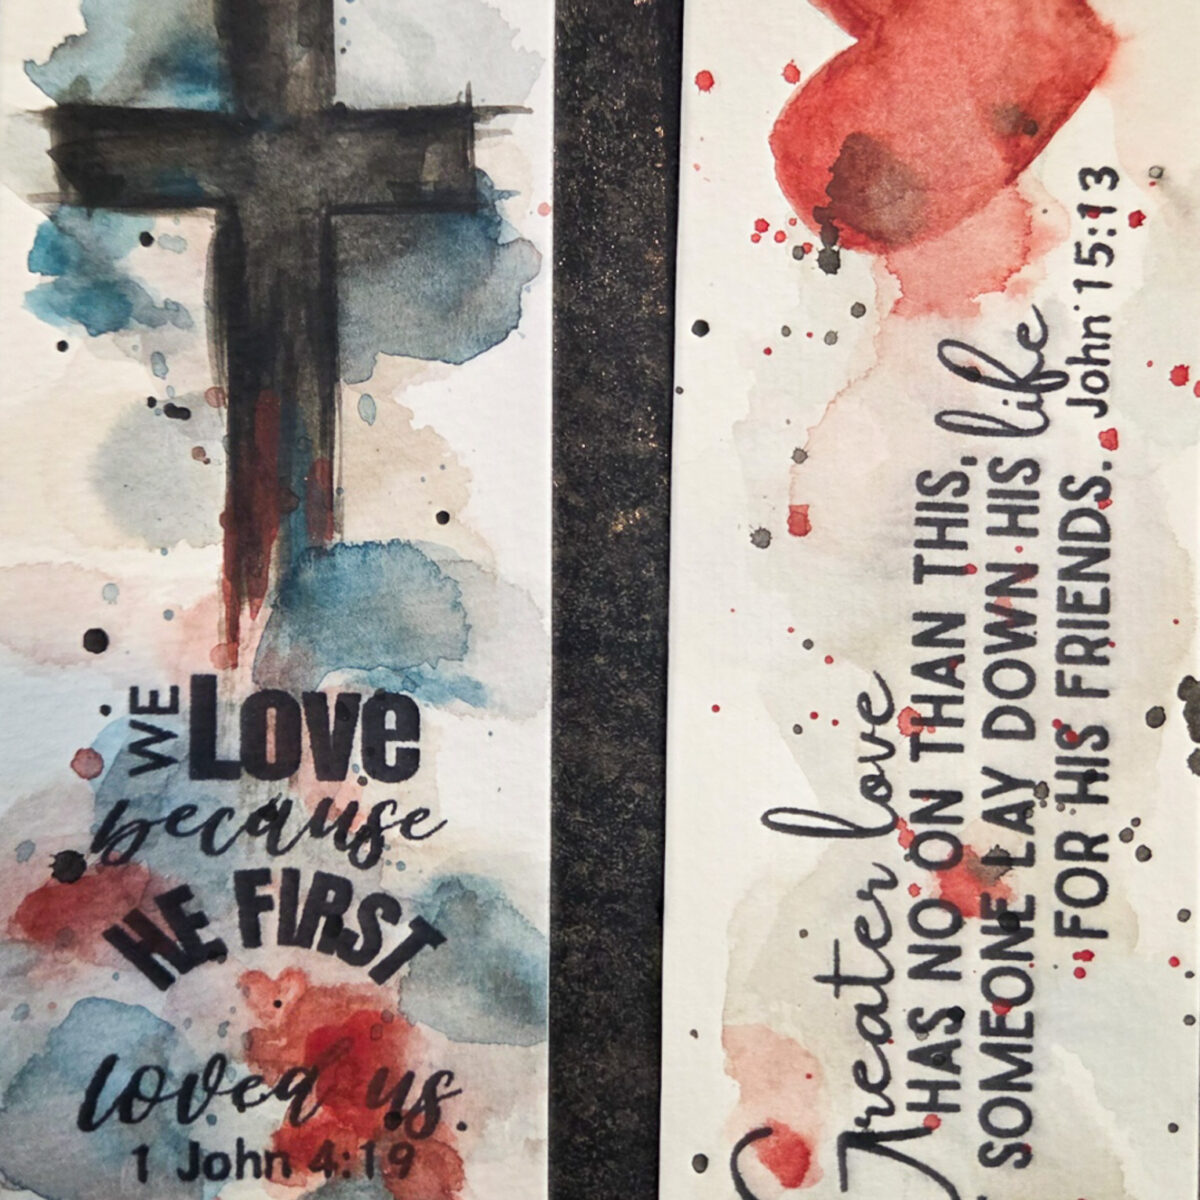 WE Love
because
HE FIRST
loved us.
1 John 4:19
Greater love
HAS NO ON THAN THIS,
SOMEONE LAY DOWN HIS life
FOR HIS FRIENDS. John 15:13